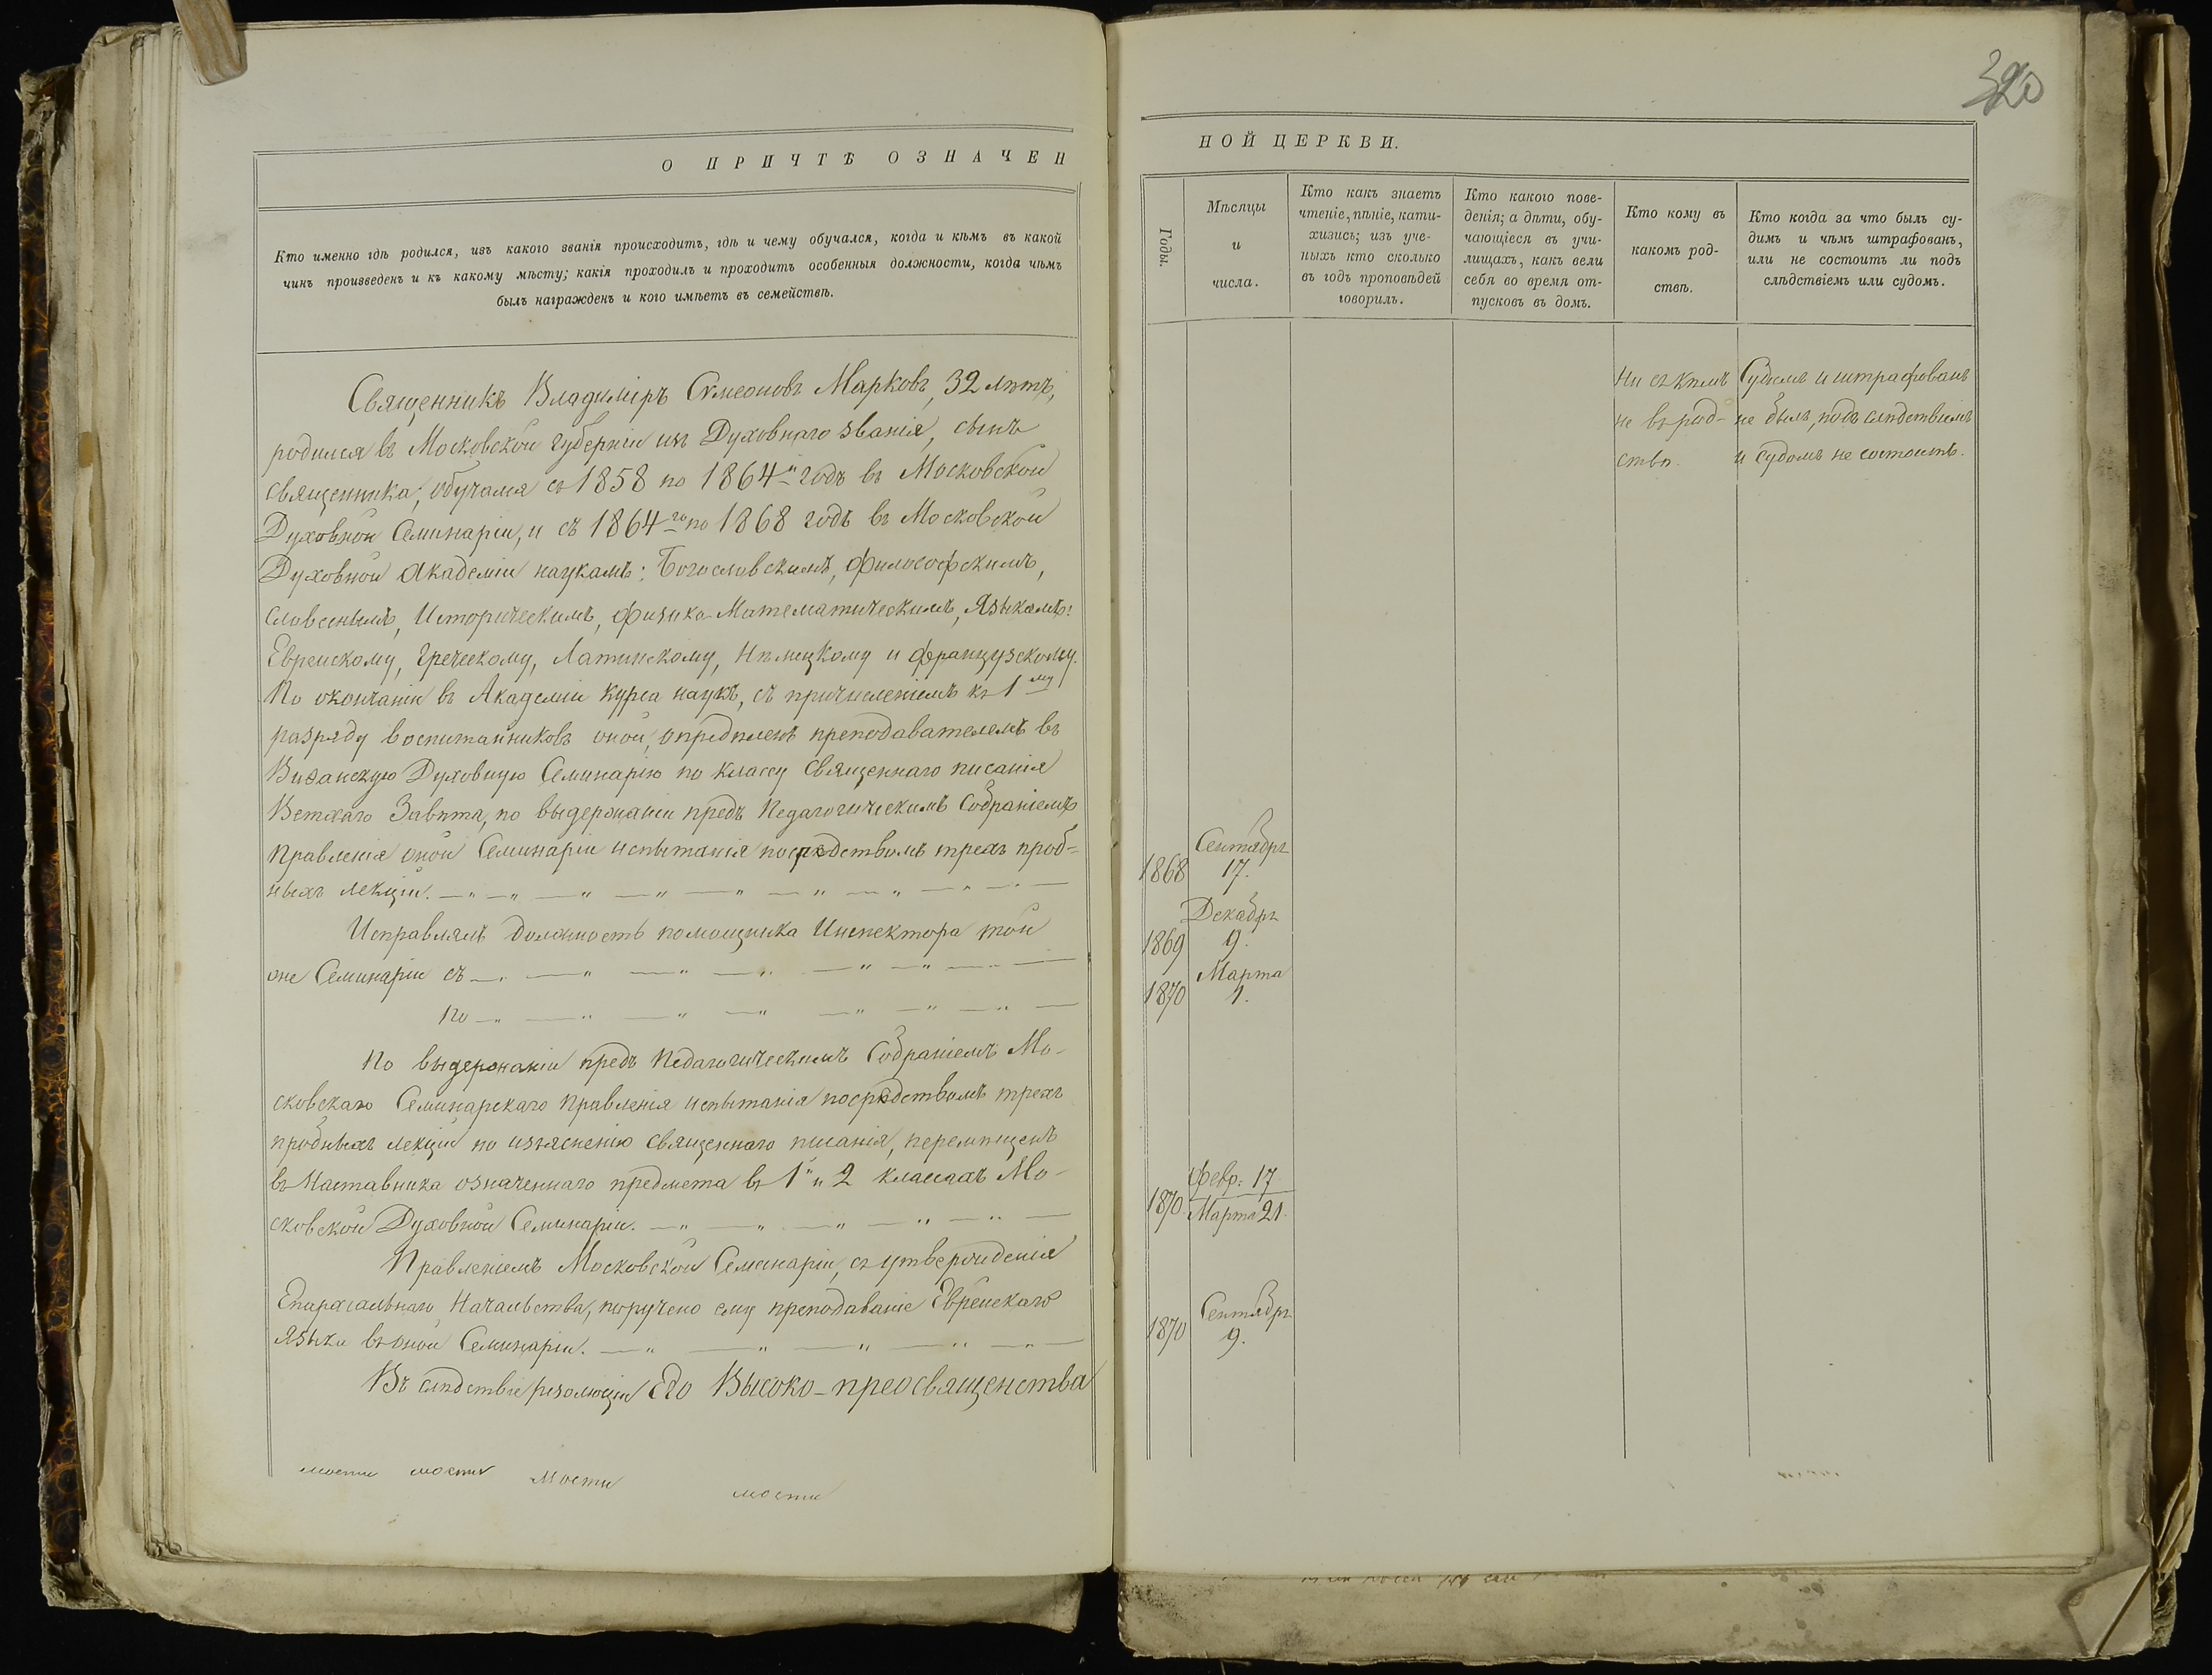 320
О ПРИЧТѢ ОЗНАЧЕН
Кто именно гдѣ родился, изъ какого званія происходитъ, гдѣ и чему обучался, когда и кѣмъ въ какой
чинъ произведенъ и къ какому мѣсту; какія проходилъ и проходитъ особенныя должности, когда чѣмъ
былъ награжденъ и кого имѣетъ въ семействѣ.
Священникъ Владиміръ Симеоновъ Марковъ, 32 лѣтъ,
родился въ Московской губерніи изъ Духовнаго званія, сынъ
священника; обучался съ 1858 по 1864й годъ въ Московской
Духовной Семинаріи, и съ 1864го по 1868 годъ въ Московской
Духовной Академіи наукамъ: Богословскимъ, Философскимъ,
словеснымъ, Историческимъ, Физико-Математическимъ, Языкамъ:
Еврейскому, Греческому, Латинскому, Нѣмецкому и Французскому.
По окончаніи въ Академіи курса наукъ, съ причисленіемъ къ 1му
разряду воспитанниковъ оной, опредѣленъ преподавателемъ въ
Виѳанскую Духовную Семинарію по классу Священнаго писанія
Ветхаго Завѣта, по выдержаніи предъ Педагогическимъ Собраніемъ
Правленія оной Семинаріи испытанія посредствомъ трехъ проб=
ныхъ лекцій. —„—„—„—„—„—„—„—„—
Исправлялъ должность помощника Инспектора той
же Семинаріи съ —„—„—„—„—„—„—
по —„—„—„—„—„—„—„—
По выдержаніи предъ Педагогическимъ Собраніемъ Мо-
сковскаго Семинарскаго Правленія испытанія посредствомъ трехъ
пробныхъ лекцій по изъясненію Священнаго писанія, перемѣщенъ
въ Наставника означеннаго предмета въ 1 и 2 классахъ Мо-
сковской Духовной Семинаріи. —„—„—„—„—„—
Правленіемъ Московской Семинаріи, съ утвержденія
Епархіальнаго Начальства, поручено ему преподаваніе Еврейскаго
языка въ оной Семинаріи. —„—„—„—„—„—
Въ слѣдствіе резолюціи Его Высоко-преосвященства
мости мости Мости
мости
НОЙ ЦЕРКВИ.
Годы.
Мѣсяцы
и
числа.
Кто какъ знаетъ
чтеніе, пѣніе, кати-
хизисъ; изъ уче-
ныхъ кто сколько
въ годъ проповѣдей
говорилъ.
Кто какого пове-
денія; а дѣти, обу-
чающіеся въ учи-
лищахъ, какъ вели
себя во время от-
пусковъ въ домъ.
Кто кому въ
какомъ род-
ствѣ.
Кто когда за что былъ су-
димъ и чѣмъ штрафованъ,
или не состоитъ ли подъ
слѣдствіемъ или судомъ.
Ни съ кѣмъ
не въ род-
ствѣ.
Судимъ и штрафованъ
не былъ, подъ слѣдствіемъ
и судомъ не состоитъ.
Сентябрь
1868 17.
Декабрь
1869 9.
Марта
1870 1.
Февр: 17
1870. Марта 21.
Сентябрь
1870 9.